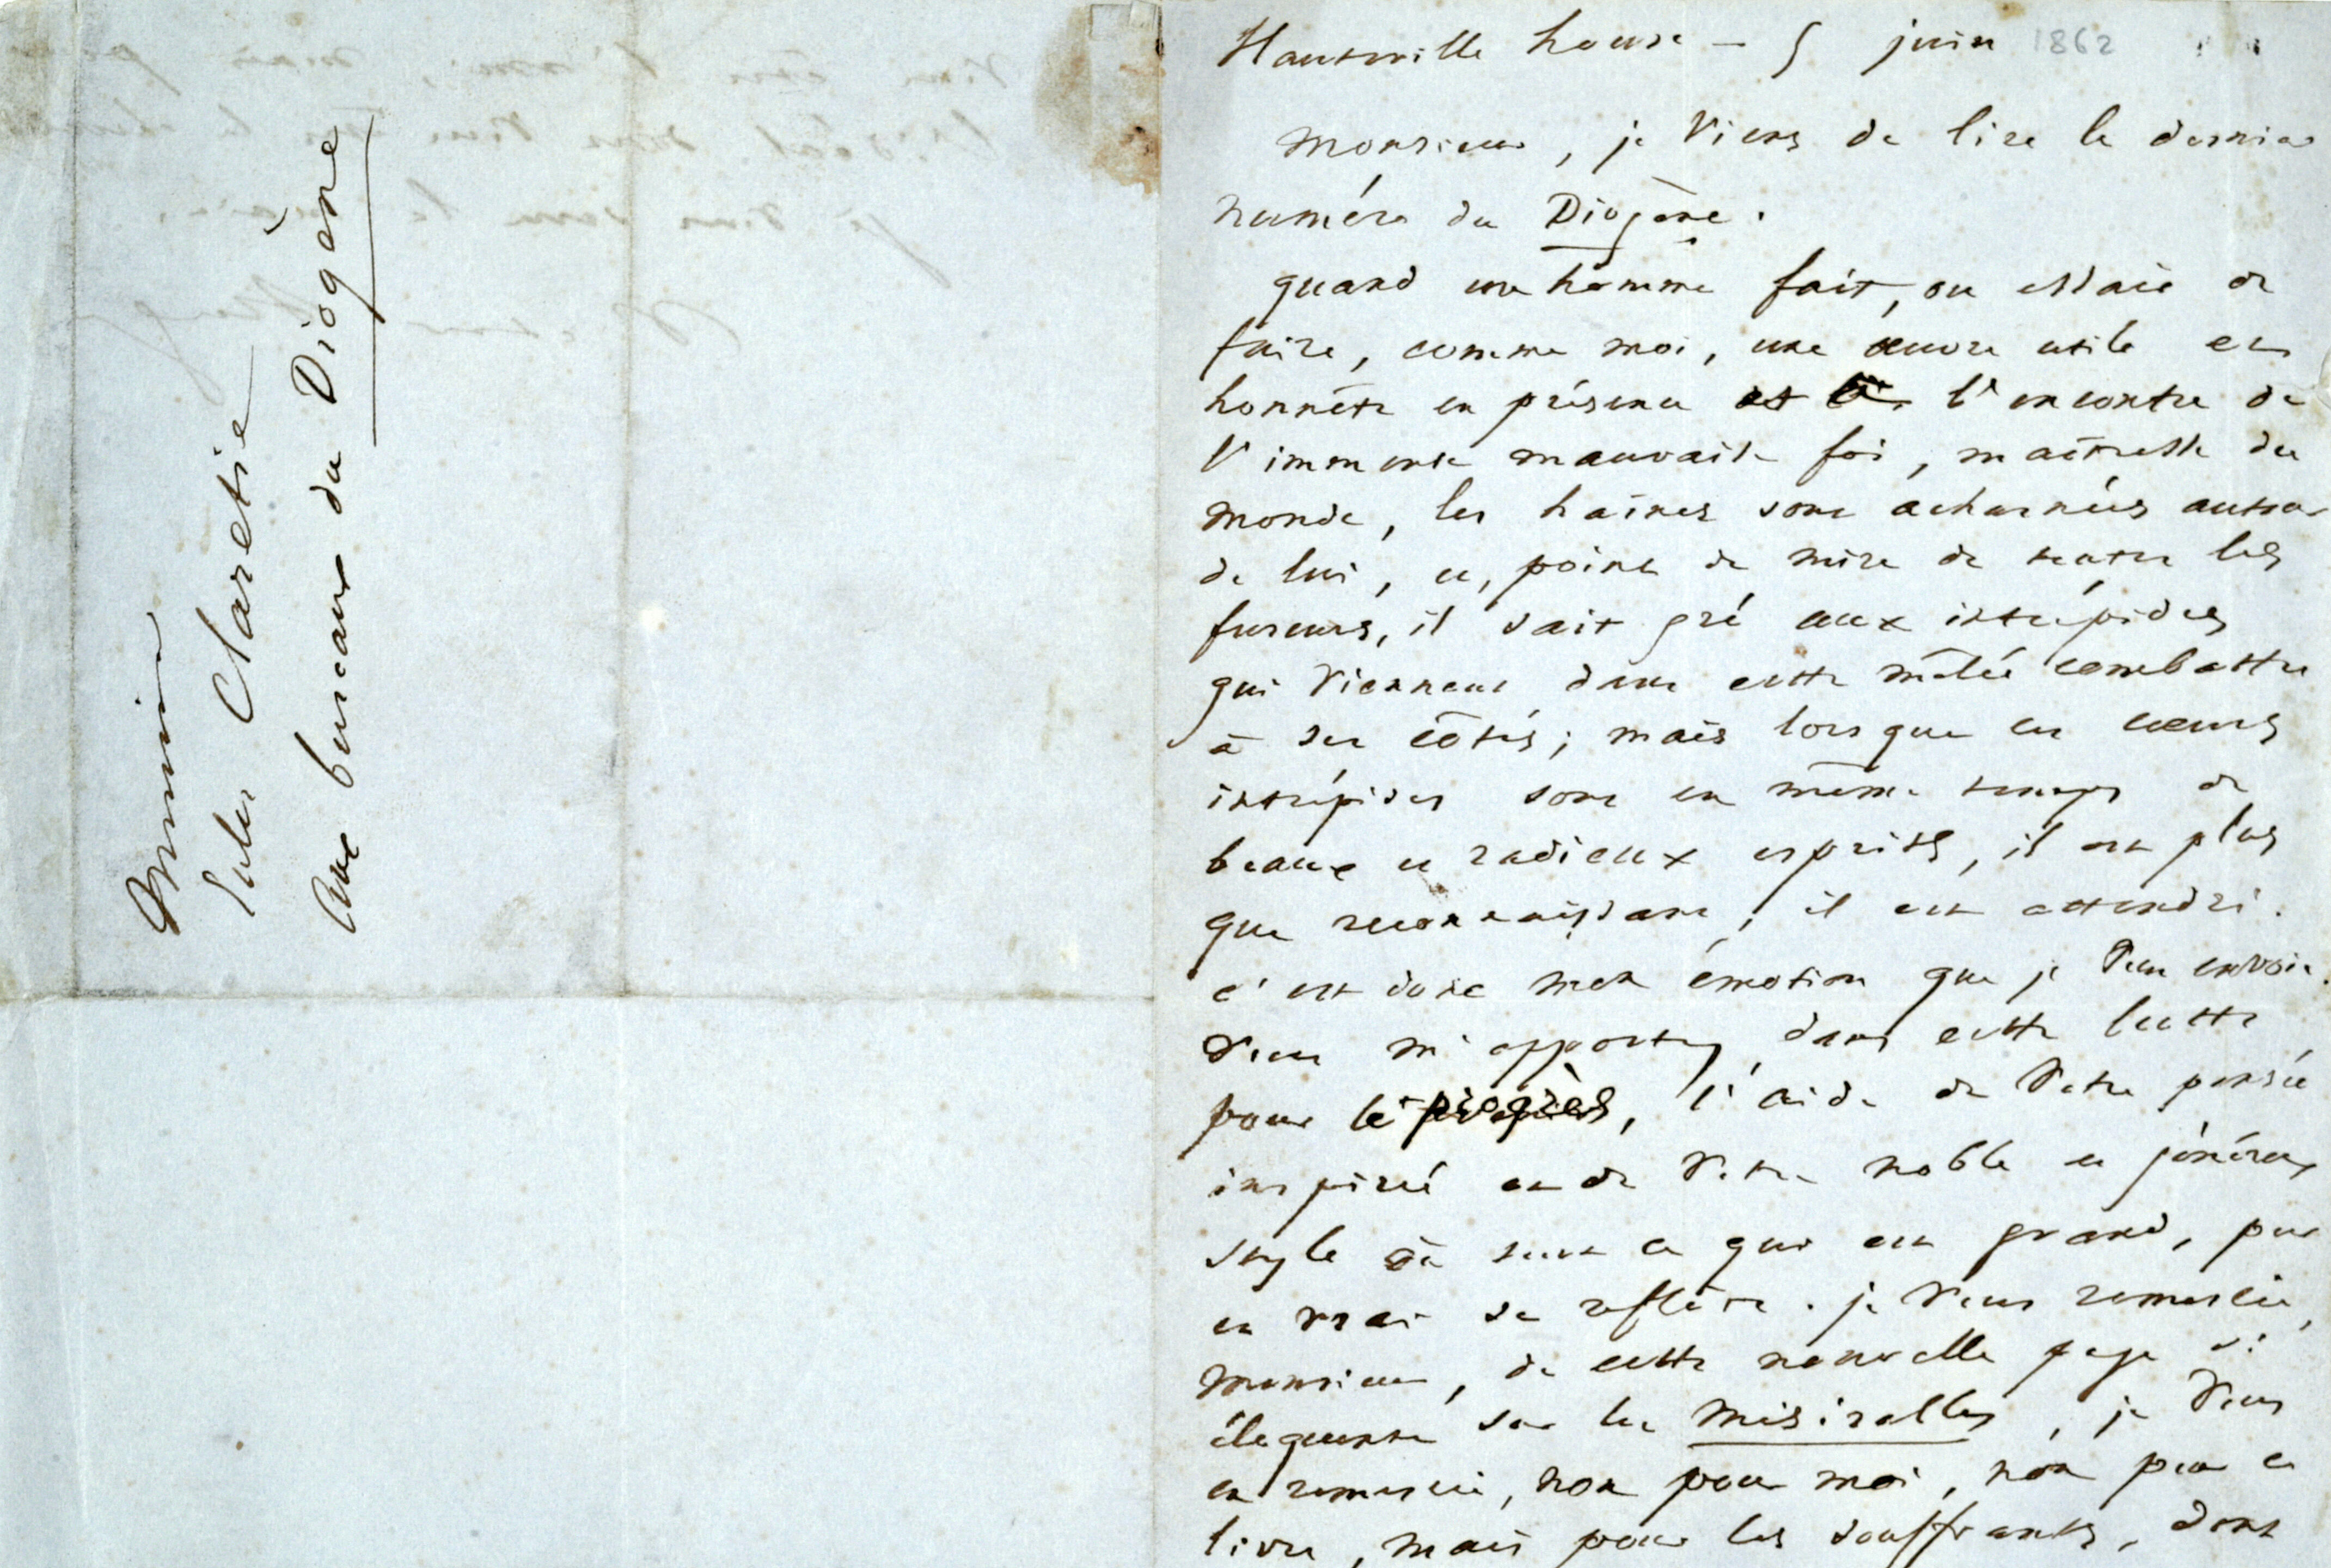 Monsieur
Jules Claretie
Aux bureaux du Diogène
Hauteville house – 5 juin 1862
Monsieur, je viens de lire le dernier
numéro du Diogène.
quand un homme fait, ou essaie de
faire, comme moi, une œuvre utile et
honnête en présence et à l'encontre de
l'immense mauvaise foi, maîtresse du
monde, les haines sont acharnées autour
de lui, et, point de mire de toutes les
fureurs, il sait gré aux intrépides
qui viennent dans cette mêlée combattre
à ses côtés; mais lorsque ces cœurs
intrépides sont en même temps de
beaux et radieux esprits, il est plus
que reconnaissant, il est attendri.
c'est donc mon émotion que je vous envoie.
Vous m'apportez, dans cette lutte
pour le progrès, l'aide de votre pensée
inspirée et de votre noble et généreux
style où tout ce qui est grand, pur
et vrai se reflète. je vous remercie,
monsieur, de cette nouvelle page si
éloquente sur les Misérables, je vous
en remercie, non pour moi, non pour ce
livre, mais pour les souffrants, dont